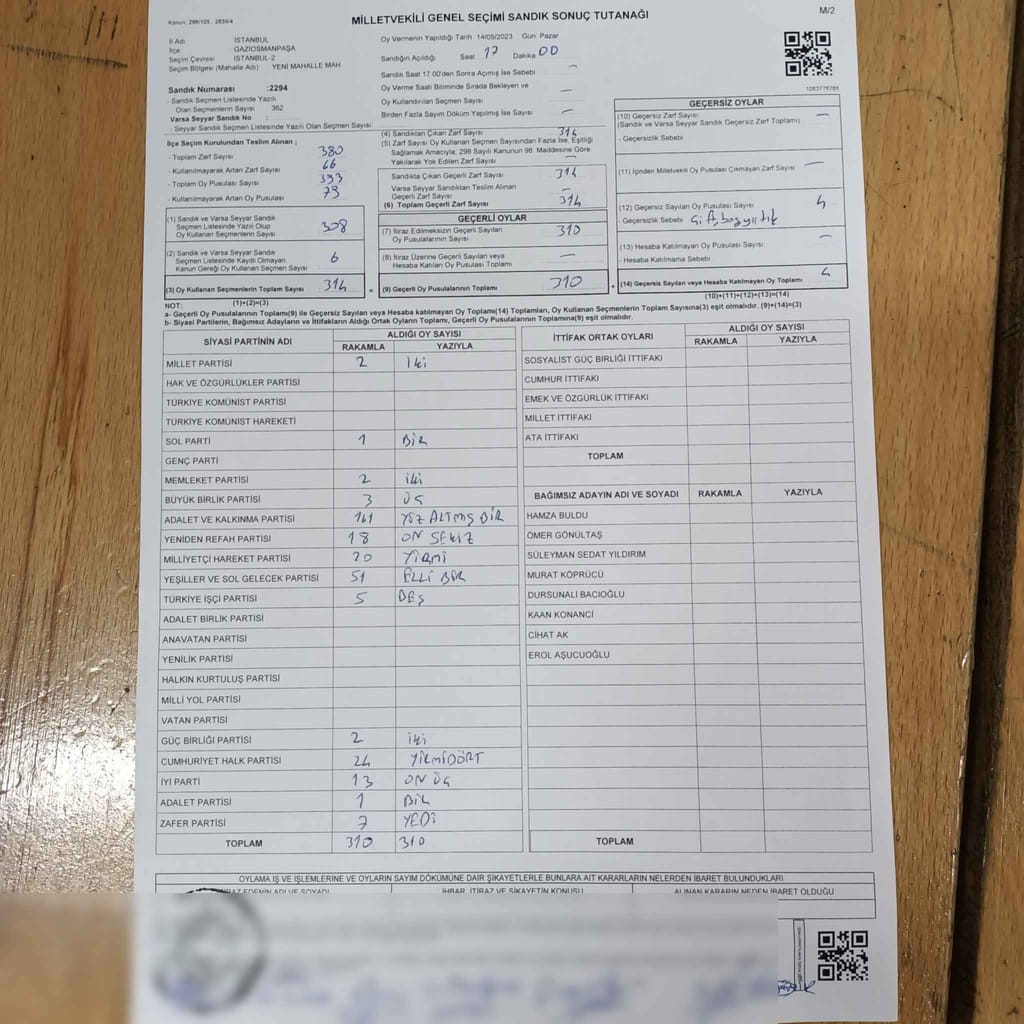 Kanun: 298/105 - 2839/4
MİLLETVEKİLİ GENEL SEÇİMİ SANDIK SONUÇ TUTANAĞI
M/2
İl Adı İSTANBUL
İlçe GAZİOSMANPAŞA
Seçim Çevresi İSTANBUL-2
Seçim Bölgesi (Mahalle Adı) YENİ MAHALLE MAH
Sandık Numarası :2294
- Sandık Seçmen Listesinde Yazılı
Olan Seçmenlerin Sayısı 362
Varsa Seyyar Sandık No :
- Seyyar Sandık Seçmen Listesinde Yazılı Olan Seçmen Sayısı:
İlçe Seçim Kurulundan Teslim Alınan ;
- Toplam Zarf Sayısı 380
- Kullanılmayarak Artan Zarf Sayısı 66
- Toplam Oy Pusulası Sayısı 393
- Kullanılmayarak Artan Oy Pusulası 79
(1) Sandık ve Varsa Seyyar Sandık
Seçmen Listesinde Yazılı Olup
Oy Kullanan Seçmenlerin Sayısı 308
(2) Sandık ve Varsa Seyyar Sandık
Seçmen Listesinde Kayıtlı Olmayan
Kanun Gereği Oy Kullanan Seçmen Sayısı 6
(3) Oy Kullanan Seçmenlerin Toplam Sayısı : 314 =
(1)+(2)=(3)
Oy Vermenin Yapıldığı Tarih 14/05/2023 Gün Pazar
Sandığın Açıldığı Saat 17 Dakika 00
Sandık Saat 17.00'den Sonra Açımış İse Sebebi —
Oy Verme Saati Bitiminde Sırada Bekleyen ve
Oy Kullandırılan Seçmen Sayısı —
Birden Fazla Sayım Döküm Yapılmış İse Sayısı —
(4) Sandıktan Çıkan Zarf Sayısı 314
(5) Zarf Sayısı Oy Kullanan Seçmen Sayısından Fazla İse, Eşitliği
Sağlamak Amacıyla; 298 Sayılı Kanunun 98. Maddesine Göre
Yakılarak Yok Edilen Zarf Sayısı —
Sandıkta Çıkan Geçerli Zarf Sayısı 314
Varsa Seyyar Sandıktan Teslim Alınan
Geçerli Zarf Sayısı —
(6) Toplam Geçerli Zarf Sayısı 314
GEÇERLİ OYLAR
(7) İtiraz Edilmeksizin Geçerli Sayılan
Oy Pusulalarının Sayısı 310
(8) İtiraz Üzerine Geçerli Sayılan veya
Hesaba Katılan Oy Pusulası Toplamı —
(9) Geçerli Oy Pusulalarının Toplamı 310 +
1083778785
GEÇERSİZ OYLAR
(10) Geçersiz Zarf Sayısı —
(Sandık ve Varsa Seyyar Sandık Geçersiz Zarf Toplamı)
- Geçersizlik Sebebi
(11) İçinden Milletvekili Oy Pusulası Çıkmayan Zarf Sayısı —
(12) Geçersiz Sayılan Oy Pusulası Sayısı 4
- Geçersizlik Sebebi
(13) Hesaba Katılmayan Oy Pusulası Sayısı —
- Hesaba Katılmama Sebebi
(14) Geçersiz Sayılan veya Hesaba Katılmayan Oy Toplamı 4
(10)+(11)+(12)+(13)=(14)
NOT:
a- Geçerli Oy Pusulalarının Toplamı(9) ile Geçersiz Sayılan veya Hesaba katılmayan Oy Toplamı(14) Toplamları, Oy Kullanan Seçmenlerin Toplam Sayısına(3) eşit olmalıdır. (9)+(14)=(3)
b- Siyasi Partilerin, Bağımsız Adayların ve İttifakların Aldığı Ortak Oyların Toplamı, Geçerli Oy Pusulalarının Toplamına(9) eşit olmalıdır.
SİYASİ PARTİNİN ADI ALDIĞI OY SAYISI
RAKAMLA YAZIYLA
MİLLET PARTİSİ 2 İki
HAK VE ÖZGÜRLÜKLER PARTİSİ
TÜRKİYE KOMÜNİST PARTİSİ
TÜRKİYE KOMÜNİST HAREKETİ
SOL PARTİ 1 BİR
GENÇ PARTİ
MEMLEKET PARTİSİ 2 iki
BÜYÜK BİRLİK PARTİSİ 3 ÜÇ
ADALET VE KALKINMA PARTİSİ 161 YÜZ ALTMIŞ BİR
YENİDEN REFAH PARTİSİ 18 ON SEKİZ
MİLLİYETÇİ HAREKET PARTİSİ 20 YİRMİ
YEŞİLLER VE SOL GELECEK PARTİSİ 51 ELLİ BİR
TÜRKİYE İŞÇİ PARTİSİ 5 BEŞ
ADALET BİRLİK PARTİSİ
ANAVATAN PARTİSİ
YENİLİK PARTİSİ
HALKIN KURTULUŞ PARTİSİ
MİLLİ YOL PARTİSİ
VATAN PARTİSİ
GÜÇ BİRLİĞİ PARTİSİ 2 iki
CUMHURİYET HALK PARTİSİ 24 YİRMİDÖRT
İYİ PARTİ 13 ON ÜÇ
ADALET PARTİSİ 1 BİR
ZAFER PARTİSİ 7 YEDİ
TOPLAM 310 310
İTTİFAK ORTAK OYLARI ALDIĞI OY SAYISI
RAKAMLA YAZIYLA
SOSYALİST GÜÇ BİRLİĞİ İTTİFAKI
CUMHUR İTTİFAKI
EMEK VE ÖZGÜRLÜK İTTİFAKI
MİLLET İTTİFAKI
ATA İTTİFAKI
TOPLAM
BAĞIMSIZ ADAYIN ADI VE SOYADI RAKAMLA YAZIYLA
HAMZA BULDU
ÖMER GÖNÜLTAŞ
SÜLEYMAN SEDAT YILDIRIM
MURAT KÖPRÜCÜ
DURSUNALİ BACIOĞLU
KAAN KONANCİ
CİHAT AK
EROL AŞUCUOĞLU
TOPLAM
OYLAMA İŞ VE İŞLEMLERİNE VE OYLARIN SAYIM DÖKÜMÜNE DAİR ŞİKAYETLERLE BUNLARA AİT KARARLARIN NELERDEN İBARET BULUNDUKLARI
EDENİN ADI VE SOYADI İHBAR, İTİRAZ VE ŞİKAYETİN KONUSU ALINAN KARARIN NEDEN İBARET OLDUĞU